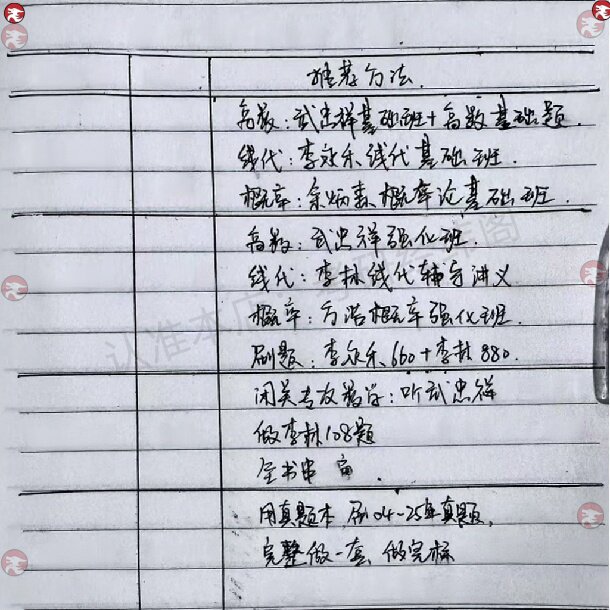 推荐方法.
高数：武忠祥基础班+高数基础题.
线代：李永乐线代基础班.
概率：余炳森概率论基础班.
高数：武忠祥强化班.
线代：李林线代辅导讲义
概率：方浩概率强化班.
刷题：李永乐660+李林880.
闭关专攻数学：听武忠祥
做李林108题
全书串
用真题本 刷04-25年真题,
完整做一套, 做完标
认准本店